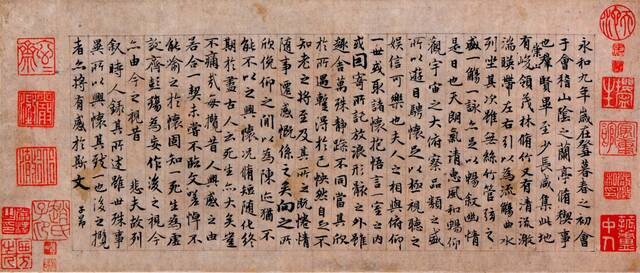 永和九年歲在癸丑暮春之初會
于會稽山陰之蘭亭脩稧事
也羣賢畢至少長咸集此地
有崇山峻領茂林脩竹又有清流激
湍暎帶左右引以為流觴曲水
列坐其次雖無絲竹管絃之
盛一觴一詠亦足以暢敘幽情
是日也天朗氣清惠風和暢仰
觀宇宙之大俯察品類之盛
所以遊目騁懷足以極視聽之
娛信可樂也夫人之相與俯仰
一世或取諸懷抱悟言一室之內
或因寄所託放浪形骸之外雖
趣舍萬殊靜躁不同當其欣
於所遇蹔得於己怏然自足不
知老之將至及其所之既惓情
隨事遷感慨係之矣向之所
欣俛仰之間以為陳迹猶不
能不以之興懷況脩短隨化終
期於盡古人云死生亦大矣豈
不痛哉每攬昔人興感之由
若合一契未嘗不臨文嗟悼不
能喻之於懷固知一死生為虛
誕齊彭殤為妄作後之視今
亦由今之視昔悲夫故列
敘時人錄其所述雖世殊事
異所以興懷其致一也後之攬
者亦將有感於斯文
子昂